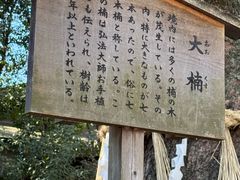 大楠
おおくす
境内には多くの楠の木
が茂生している。その
内、特に大きなものが七
本あったので、俗に七
本楠と称している。こ
の楠は弘法大師お手植
とも伝えられ、樹齢は
年以上といわれている。